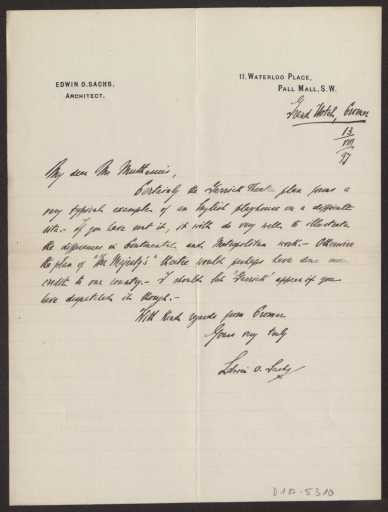 EDWIN O. SACHS,
ARCHITECT.
11, WATERLOO PLACE,
PALL MALL, S.W.
Grand Hotel, Cromer
13
VIII
97
My dear Mr
Certainly the Garrick Theatre plan forms a
very typical example of an English playhouse on a difficult
site. If you have not it, it will do very well to illustrate
the differences in Continental and Metropolitan work. - Otherwise
the plan of 'Her Majesty's' theatre would perhaps have done more
credit to our country. - I should let 'Garrick' appear if you
have it though. -
With kind regards from Cromer
Yours very truly
Edwin O. Sachs
D 182-5310